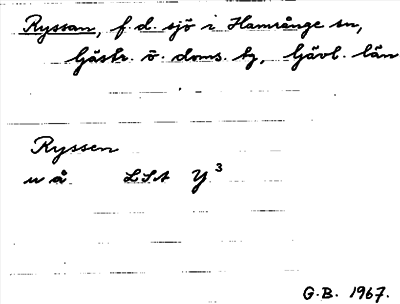 Ryssan, f.d. sjö i Hamrånge sn,
Gästr. ö. doms. tg, Gävl. län
Ryssen
u å LSA Y³
G.B. 1967.